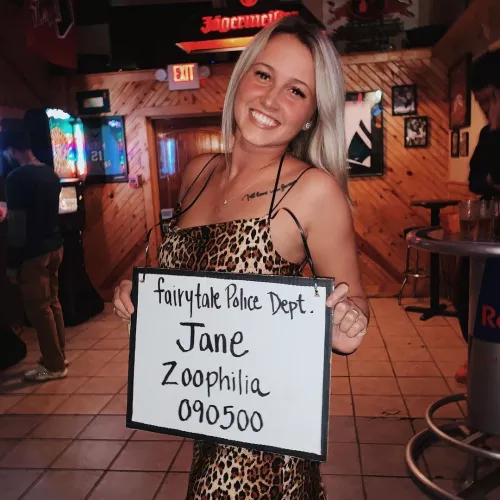 Jägermeister
EXIT
fairytale Police Dept.
Jane
Zoophilia
090500